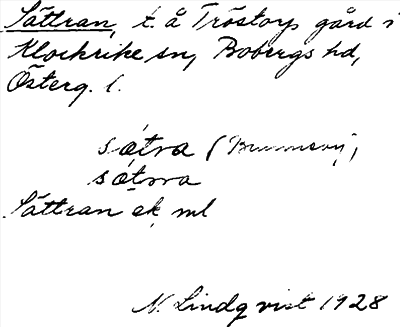 Sättran, t. å Tröstorp gård i
Klockrike sn, Bobergs hd,
Österg. l.
sátra (
sátrra
Sättran ek. ml
N. Lindqvist 1928